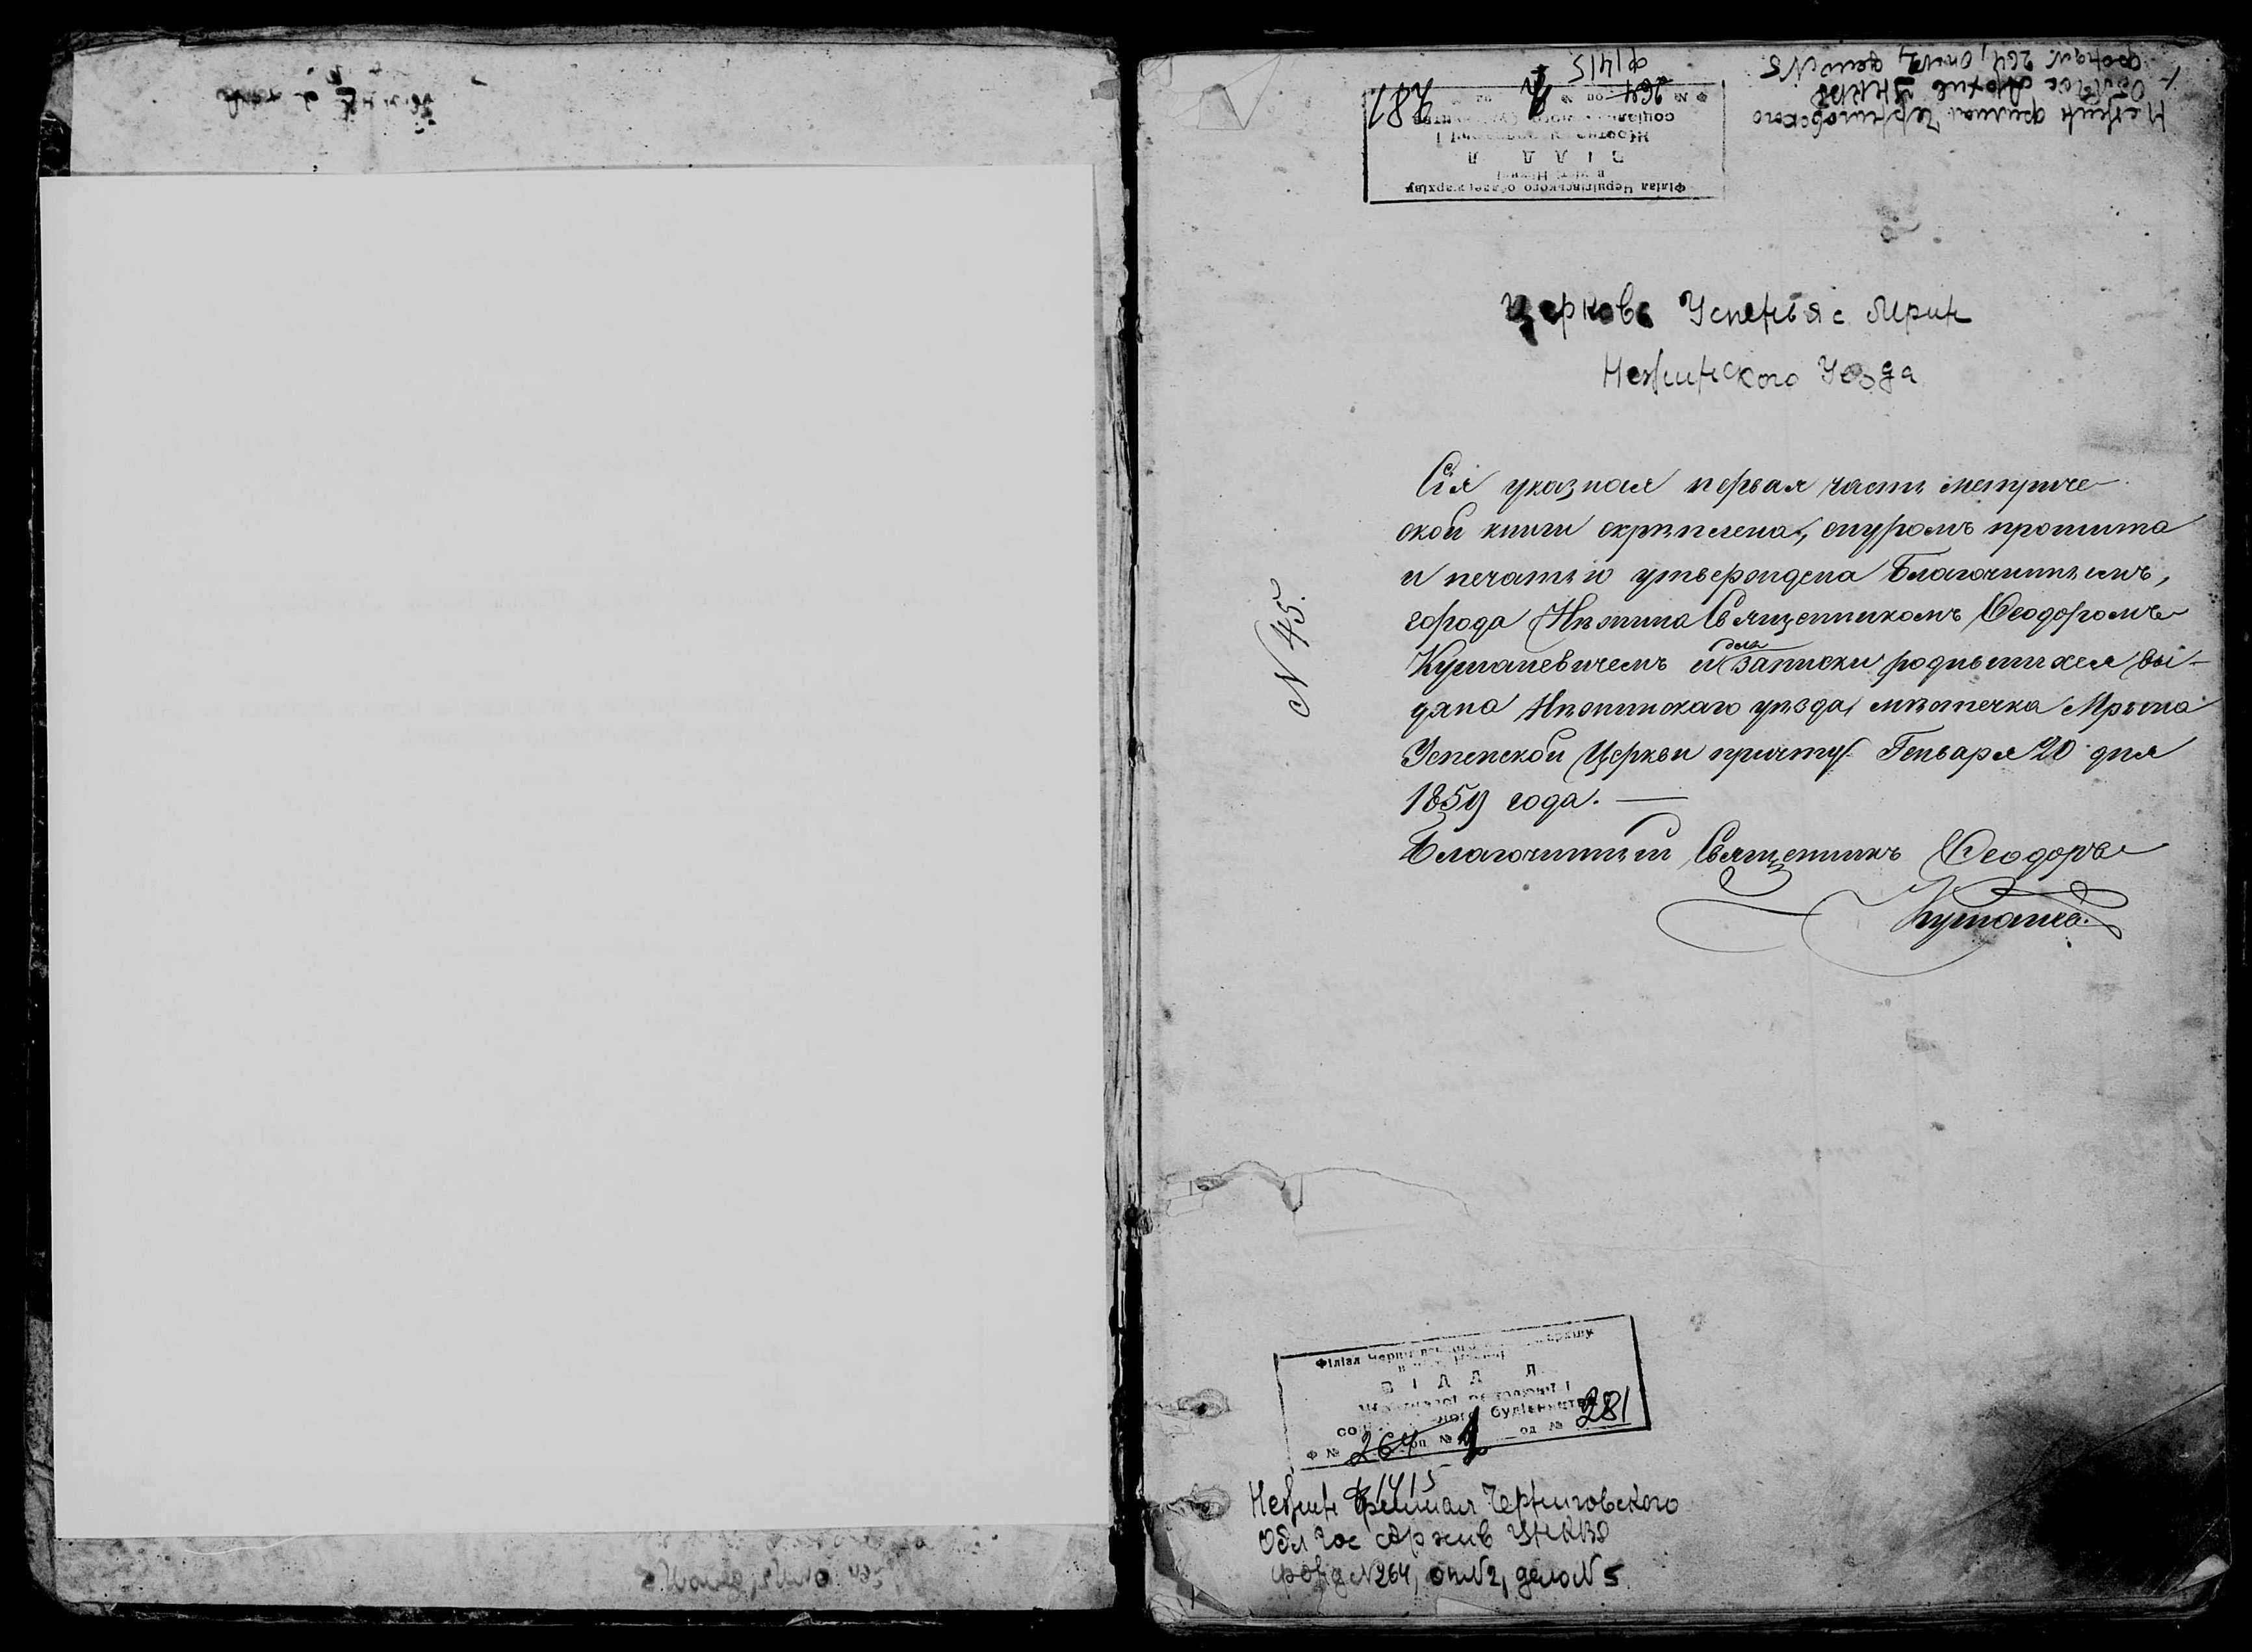 281
264
ф1415
Нежин филиал Черниговского
Обл Гос Архив УНКВД
фонд № 264, оп №2, дело №5
Філіал Чернігівського облдержархіву
в місті Ніжині
ВІДДІЛ
Жовтневої революції і
соціалістичного будівництва
Ф № оп № од №
Церковь Успенья с. Мрин
Нежинского Уезда
N 45.
Сія указная первая часть метриче-
ской книги скрѣплена, шнуромъ прошита
и печатью утверждена Благочиннымъ,
города Нѣжина Священникомъ Ѳеодоромъ
Кушакевичемъ и для записки родившихся вы-
дана Нѣжинскаго уѣзда, мѣстечка Мрына
Успенской Церкви причту Генваря 20 дня
1859 года. —
Благочинный Священникъ Ѳеодоръ
Філіал Чернігівського облдержархіву
в місті Ніжині
ВІДДІЛ
Жовтневої революції і
соціалістичного будівництва
Ф № 264 оп № од № 281
ф1415
Нежин филиал Черниговского
Обл Гос Архив УНКВД
фонд №264, оп №2, дело № 5